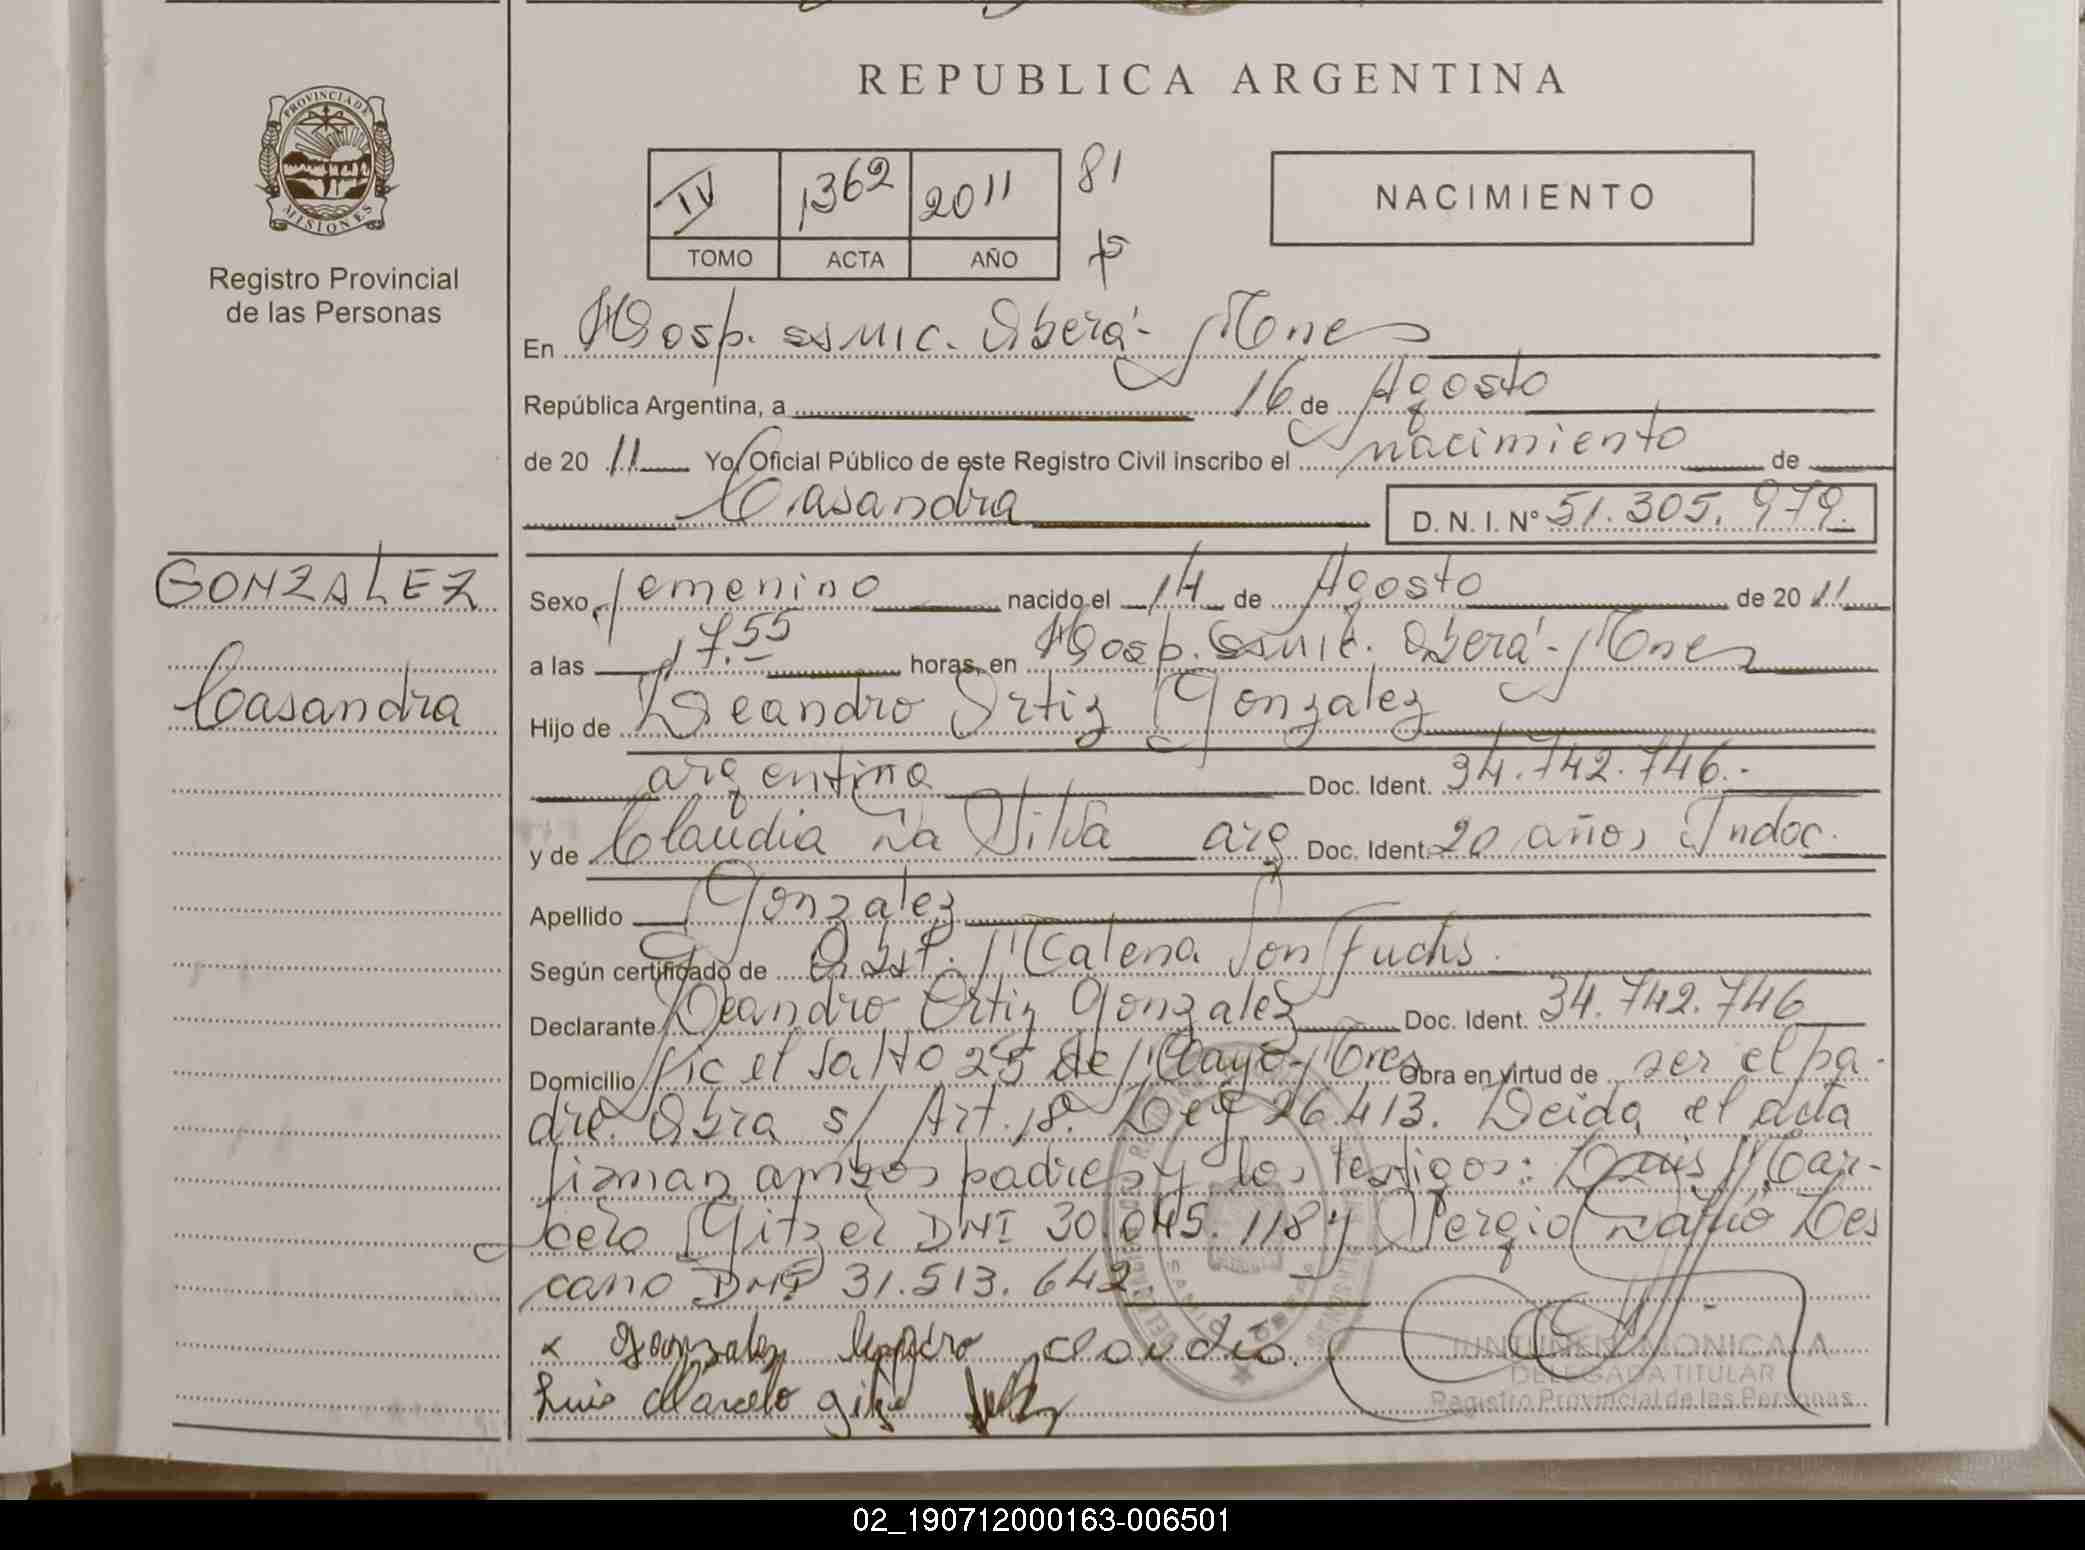 REPUBLICA ARGENTINA
PROVINCIA DE MISIONES
Registro Provincial
de las Personas
IV 1362 2011 81
TOMO ACTA AÑO
NACIMIENTO
En Hosp. ssmic. Oberá - Mnes
República Argentina, a 16 de Agosto
de 2011 Yo, Oficial Público de este Registro Civil inscribo el nacimiento de
Casandra D. N. I. Nº 51.305.979.
GONZALEZ
Casandra
Sexo femenino nacido el 14 de Agosto de 2011
a las 17.55 horas, en Hosp. ssmic. Oberá - Mnes
Hijo de Leandro Ortiz Gonzalez
argentina Doc. Ident. 34.742.746.-
y de Claudia Da Silva arg Doc. Ident. 20 años Indoc.
Apellido Gonzalez
Según certificado de Obst. Malena Von Fuchs.
Declarante Leandro Ortiz Gonzalez Doc. Ident. 34.742.746
Domicilio Pic el Salto 25 de Mayo - Mnes Obra en virtud de ser el pa-
dre. Obra s/ Art. 18. Ley 26.413. Leida el acta
firman ambos padres y los testigos: Luis Mar-
celo Gitzel DNI 30.045.118 y Sergio Dario Les
cano DNI 31.513.642.
x Gonzalez claudia.
Luis Marcelo
MONICA A
DELEGADA TITULAR
Registro Provincial de las Personas
02_190712000163-006501